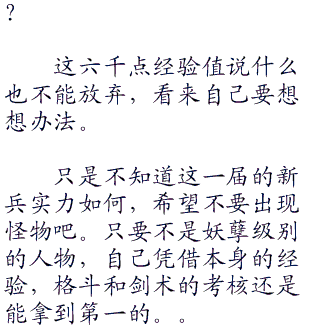 ?
这六千点经验值说什么
也不能放弃，看来自己要想
想办法。
只是不知道这一届的新
兵实力如何，希望不要出现
怪物吧。只要不是妖孽级别
的人物，自己凭借本身的经
验，格斗和剑术的考核还是
能拿到第一的。。